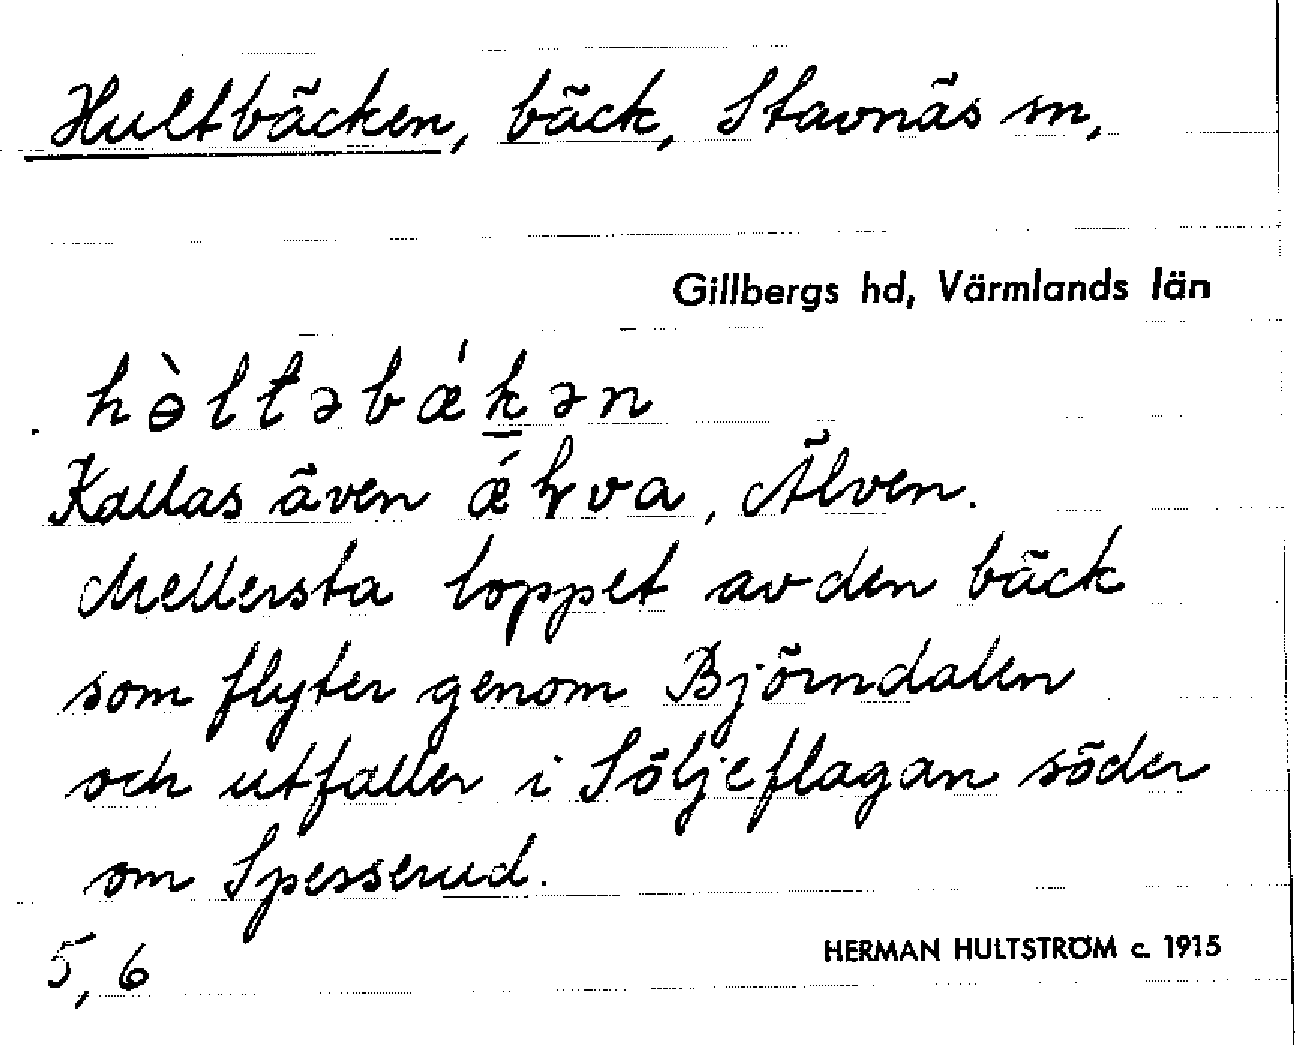 Hultbäcken, bäck, Stavnäs sn,
Gillbergs hd, Värmlands län
hɵ̀ltəbǽkən
Kallas även ǽɽva, Älven.
Mellersta loppet av den bäck
som flyter genom Björndalen
och utfaller i Söljeflagan söder
om Spesserud.
5, 6
HERMAN HULTSTRÖM c. 1915